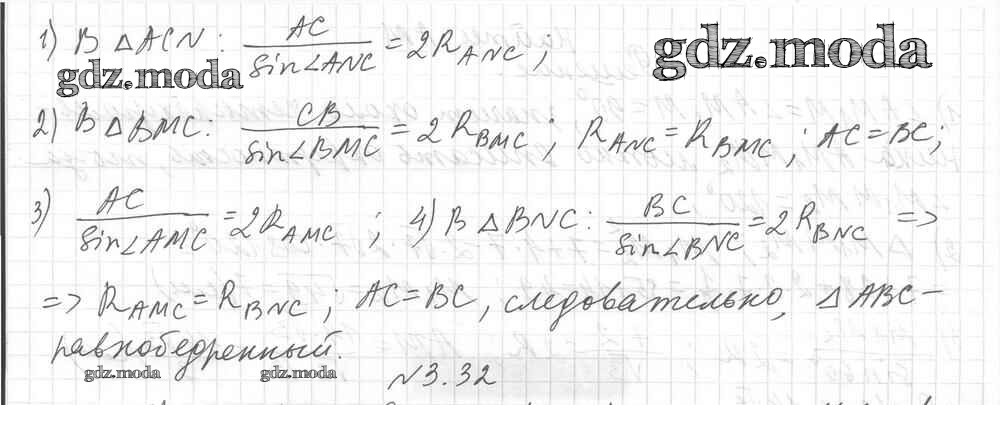 1) В △ACN: AC / sin∠ANC = 2R_ANC;
gdz.moda
gdz.moda
2) В △BMC: CB / sin∠BMC = 2R_BMC; R_ANC = R_BMC; AC = BC;
3) AC / sin∠AMC = 2R_AMC; 4) В △BNC: BC / sin∠BNC = 2R_BNC =>
=> R_AMC = R_BNC; AC = BC, следовательно, △ABC –
равнобедренный.
gdz.moda gdz.moda
№3.32